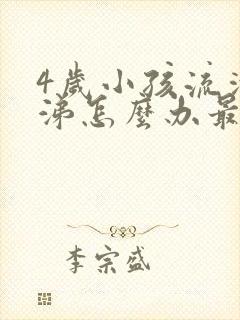 4歲小孩流
涕怎麼办最
李宗盛